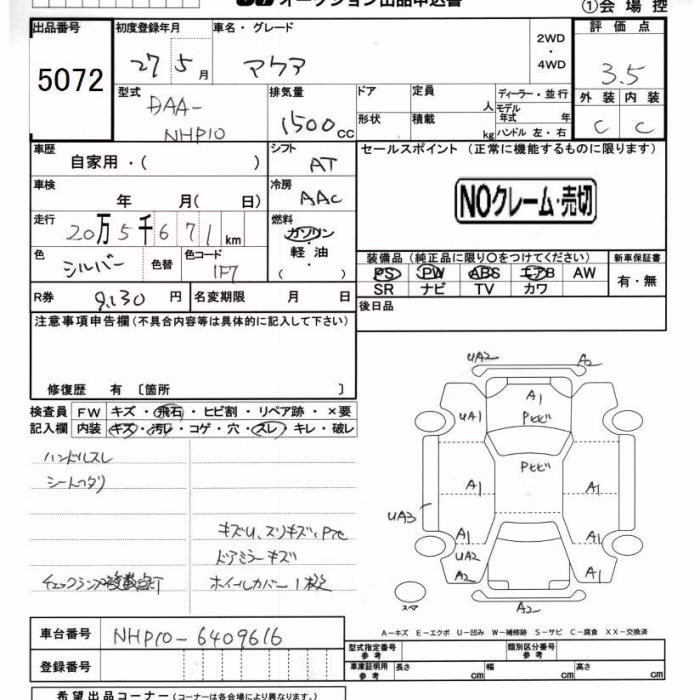 オークション出品申込書
①会場控
出品番号 初度登録年月 車名・グレード 2WD・4WD 評価点
5072 27 5月 アクア 3.5
型式 DAA-NHP10 排気量 1500cc
ドア 定員 人 ディーラー・並行 外装 内装
形状 積載 kg モデル年式 年 ハンドル 左・右 C C
車歴 自家用・( ) シフト AT セールスポイント (正常に機能するものに限ります)
車検 年 月( 日) 冷房 AAC
NOクレーム・売切
走行 20万5千671km 燃料 ガソリン・軽油( )
色 シルバー 色替 色コード 1F7
装備品(純正品に限り○をつけてください) 新車保証書
PS PW ABS エアB AW 有・無
SR ナビ TV カワ
R券 9,130円 名変期限 月 日 後日品
注意事項申告欄(不具合内容等は具体的に記入して下さい)
修復歴 有 〔箇所 〕
検査員 FW キズ・飛石・ヒビ割・リペア跡・×要
記入欄 内装 キズ・汚レ・コゲ・穴・スレ・キレ・破レ
ハンドルスレ
シートヘタリ
キズU、スリキズ、Pケセ
ドアミラーキズ
チェックランプ複数点灯 ホイールカバー1枚欠
UA2 A2
A1
UA1 Pヒビ A1
Pヒビ
A1 A1
UA3
A1 A1
UA2
A2 A1
スペア A2
A-キズ E-エクボ U-凹み W-補修跡 S-サビ C-腐食 XX-交換済
車台番号 NHP10-6409616
登録番号
型式指定番号 参考 類別区分番号 参考
車庫証明用 参考 長さ cm 幅 cm 高さ cm
希望出品コーナー(コーナーは各会場により異なります。)